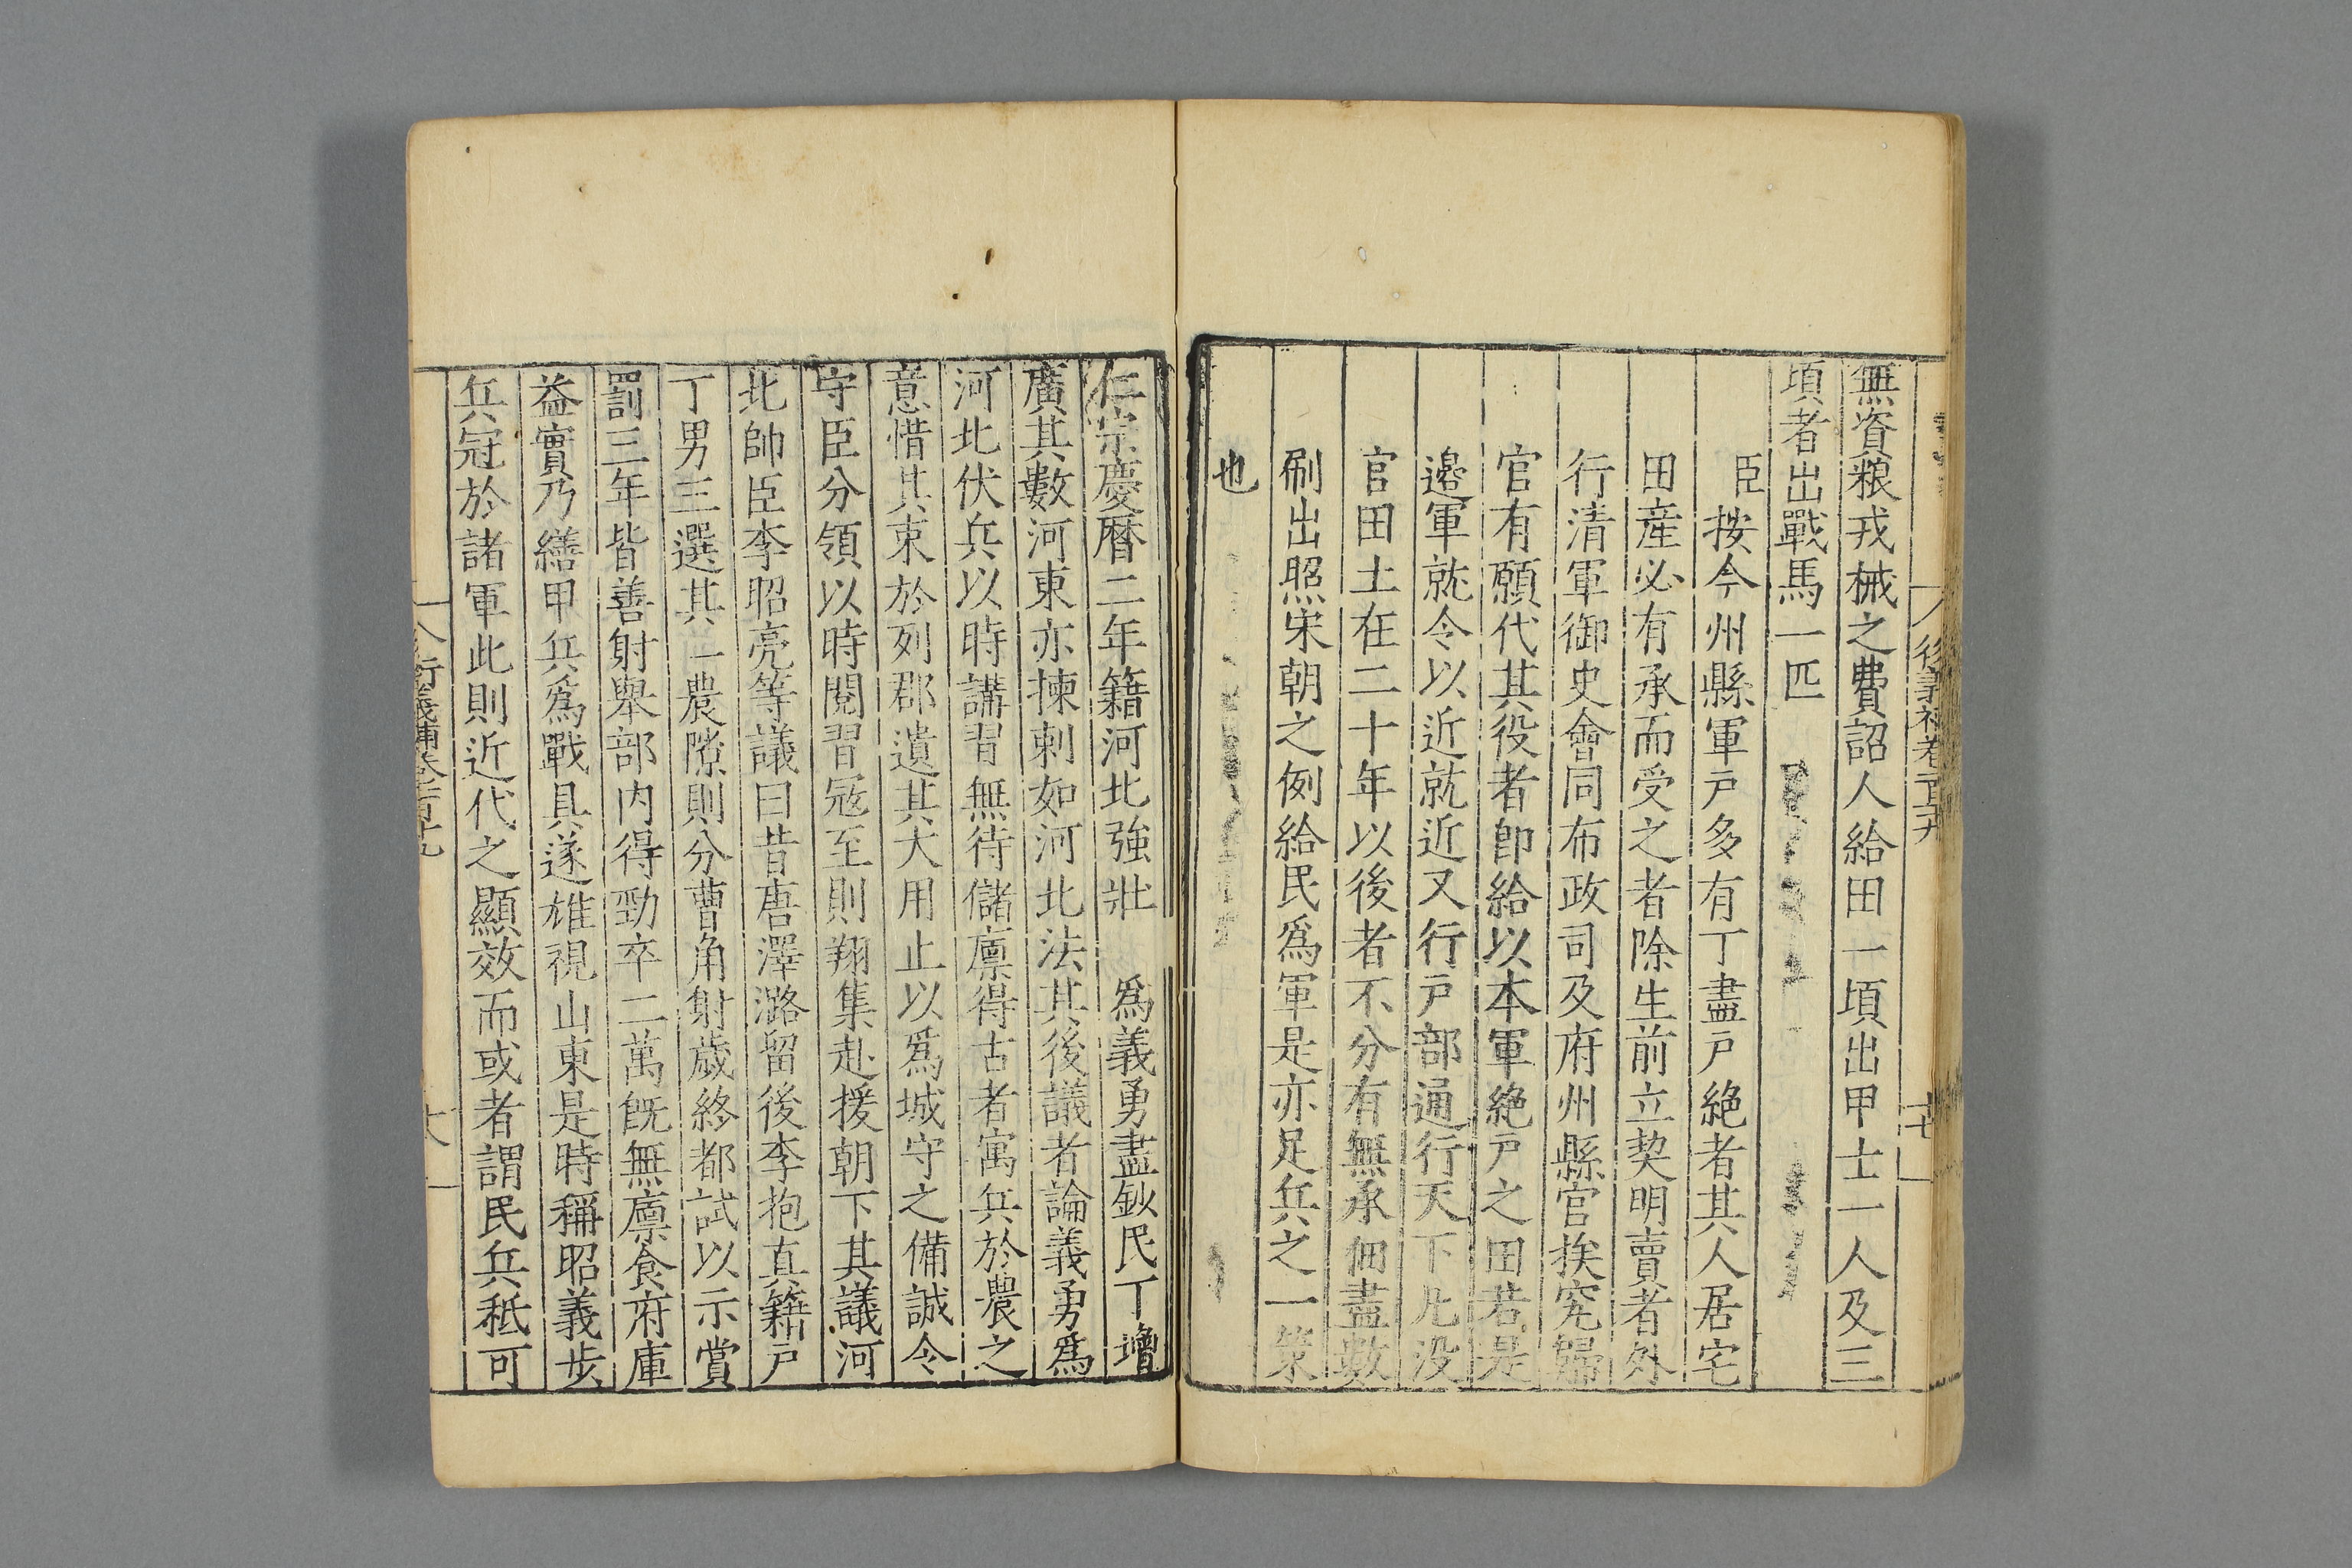 無資粮戎械之費詔人給田一頃出甲士一人及三
頃者出戰馬一匹
臣按今州縣軍戸多有丁盡戸絶者其人居宅
田産必有承而受之者除生前立契明賣者外
行清軍御史會同布政司及府州縣官挨究歸
官有願代其役者卽給以本軍絶戸之田若是
邉軍就令以近就近又行戸部通行天下凡没
官田土在二十年以後者不分有無承佃盡數
刷出照宋朝之例給民爲軍是亦足兵之一策
也
仁宗慶曆二年籍河北強壯 爲義勇盡鈔民丁增
廣其數河東亦揀刺如河北法其後議者論義勇爲
河北伏兵以時講習無待儲廪得古者寓兵於農之
意惜其束於列郡遺其大用止以爲城守之備誠令
守臣分領以時閱習冦至則翔集赴援朝下其議河
北帥臣李昭亮等議曰昔唐澤潞留後李抱真籍戸
丁男三選其一農隙則分曹角射歲終都試以示賞
罰三年皆善射舉部内得勁卒二萬旣無廪食府庫
益實乃繕甲兵爲戰具遂雄視山東是時稱昭義步
兵冠於諸軍此則近代之顯效而或者謂民兵秪可